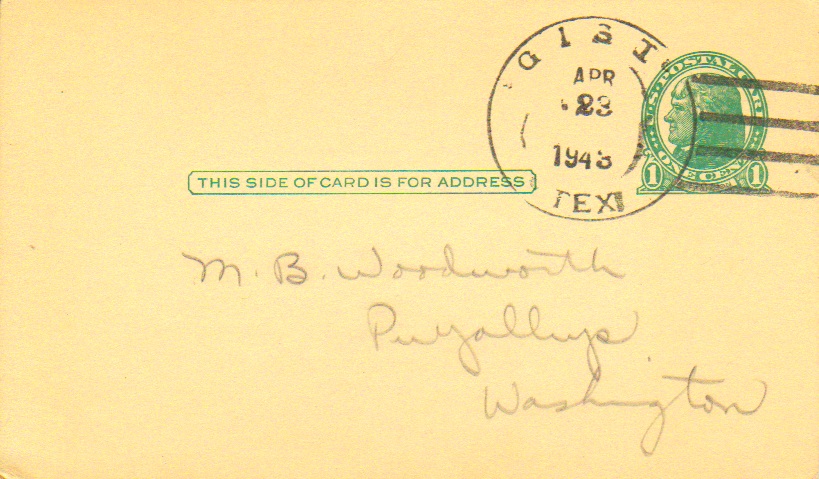 GIST
APR
23
1943
TEX
U.S. POSTAL CARD
1 ONE CENT 1
THIS SIDE OF CARD IS FOR ADDRESS
M. B. Woodworth
Puyallup
Washington